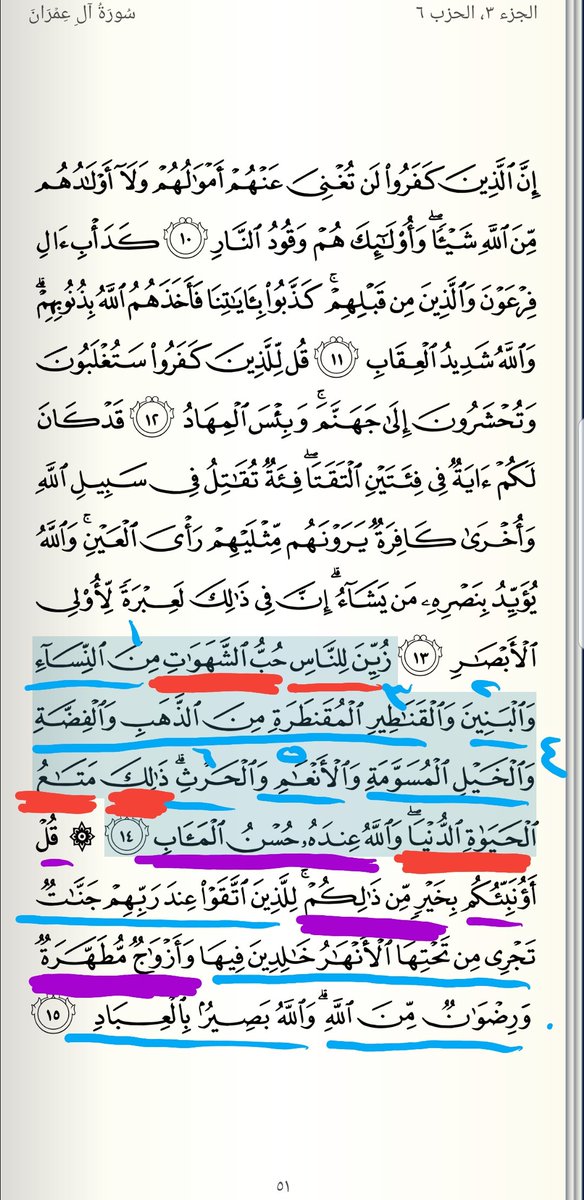 الجزء ٣، الحزب ٦
سُورَةُ آلِ عِمْرَانَ
إِنَّ ٱلَّذِينَ كَفَرُوا۟ لَن تُغْنِىَ عَنْهُمْ أَمْوَٰلُهُمْ وَلَآ أَوْلَـٰدُهُم
مِّنَ ٱللَّهِ شَيْـًٔا ۖ وَأُو۟لَـٰٓئِكَ هُمْ وَقُودُ ٱلنَّارِ ١٠ كَدَأْبِ ءَالِ
فِرْعَوْنَ وَٱلَّذِينَ مِن قَبْلِهِمْ ۚ كَذَّبُوا۟ بِـَٔايَـٰتِنَا فَأَخَذَهُمُ ٱللَّهُ بِذُنُوبِهِمْ ۗ
وَٱللَّهُ شَدِيدُ ٱلْعِقَابِ ١١ قُل لِّلَّذِينَ كَفَرُوا۟ سَتُغْلَبُونَ
وَتُحْشَرُونَ إِلَىٰ جَهَنَّمَ ۚ وَبِئْسَ ٱلْمِهَادُ ١٢ قَدْ كَانَ
لَكُمْ ءَايَةٌ فِى فِئَتَيْنِ ٱلْتَقَتَا ۖ فِئَةٌ تُقَـٰتِلُ فِى سَبِيلِ ٱللَّهِ
وَأُخْرَىٰ كَافِرَةٌ يَرَوْنَهُم مِّثْلَيْهِمْ رَأْىَ ٱلْعَيْنِ ۚ وَٱللَّهُ
يُؤَيِّدُ بِنَصْرِهِۦ مَن يَشَآءُ ۗ إِنَّ فِى ذَٰلِكَ لَعِبْرَةً لِّأُو۟لِى
ٱلْأَبْصَـٰرِ ١٣ زُيِّنَ لِلنَّاسِ حُبُّ ٱلشَّهَوَٰتِ مِنَ ٱلنِّسَآءِ ١
وَٱلْبَنِينَ وَٱلْقَنَـٰطِيرِ ٱلْمُقَنطَرَةِ مِنَ ٱلذَّهَبِ وَٱلْفِضَّةِ ٢ ٣
وَٱلْخَيْلِ ٱلْمُسَوَّمَةِ وَٱلْأَنْعَـٰمِ وَٱلْحَرْثِ ۗ ذَٰلِكَ مَتَـٰعُ ٤ ٥ ٦
ٱلْحَيَوٰةِ ٱلدُّنْيَا ۖ وَٱللَّهُ عِندَهُۥ حُسْنُ ٱلْمَـَٔابِ ١٤ ۞ قُلْ
أَؤُنَبِّئُكُم بِخَيْرٍ مِّن ذَٰلِكُمْ ۚ لِلَّذِينَ ٱتَّقَوْا۟ عِندَ رَبِّهِمْ جَنَّـٰتٌ
تَجْرِى مِن تَحْتِهَا ٱلْأَنْهَـٰرُ خَـٰلِدِينَ فِيهَا وَأَزْوَٰجٌ مُّطَهَّرَةٌ
وَرِضْوَٰنٌ مِّنَ ٱللَّهِ ۗ وَٱللَّهُ بَصِيرٌۢ بِٱلْعِبَادِ ١٥
٥١